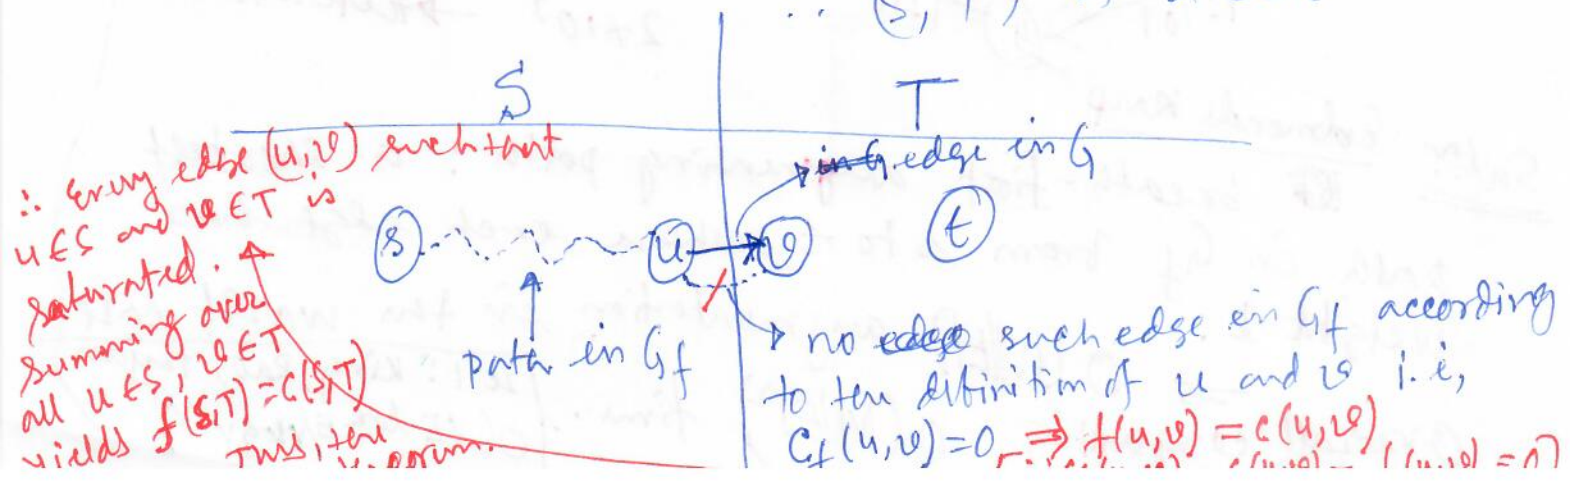 ∴ (S, T)
S
T
∴ Every edge (u,v) such that
u ∈ S and v ∈ T is
saturated.
summing over
all u ∈ S, v ∈ T
yields f(S,T) = c(S,T)
Thus, the
edge in G
s
u
v
t
path in Gf
no such edge in Gf according
to the definition of u and v i.e,
Cf(u,v)=0 ⇒ f(u,v) = c(u,v)